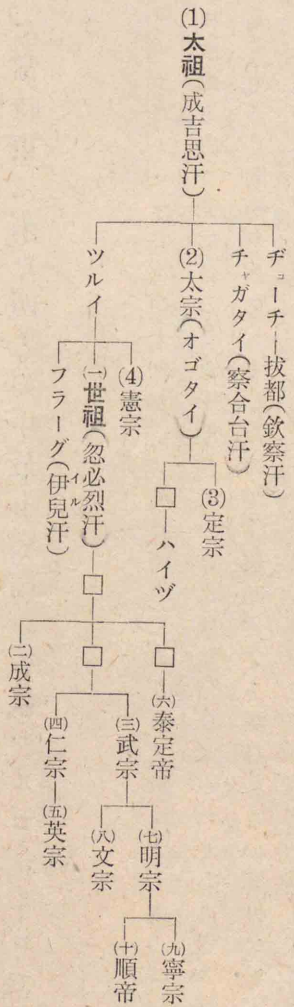 (1)太祖(成吉思汗)
ヂョーチ—拔都(欽察汗)
チャガタイ(察合台汗)
(2)太宗(オゴタイ)
(3)定宗
□—ハイヅ
ツルイ
(4)憲宗
(一)世祖(忽必烈汗)
フラーグ(伊兒汗)
イル
□
□—(六)泰定帝
□
(二)成宗
(三)武宗
(四)仁宗—(五)英宗
(七)明宗
(八)文宗
(九)寧宗
(十)順帝